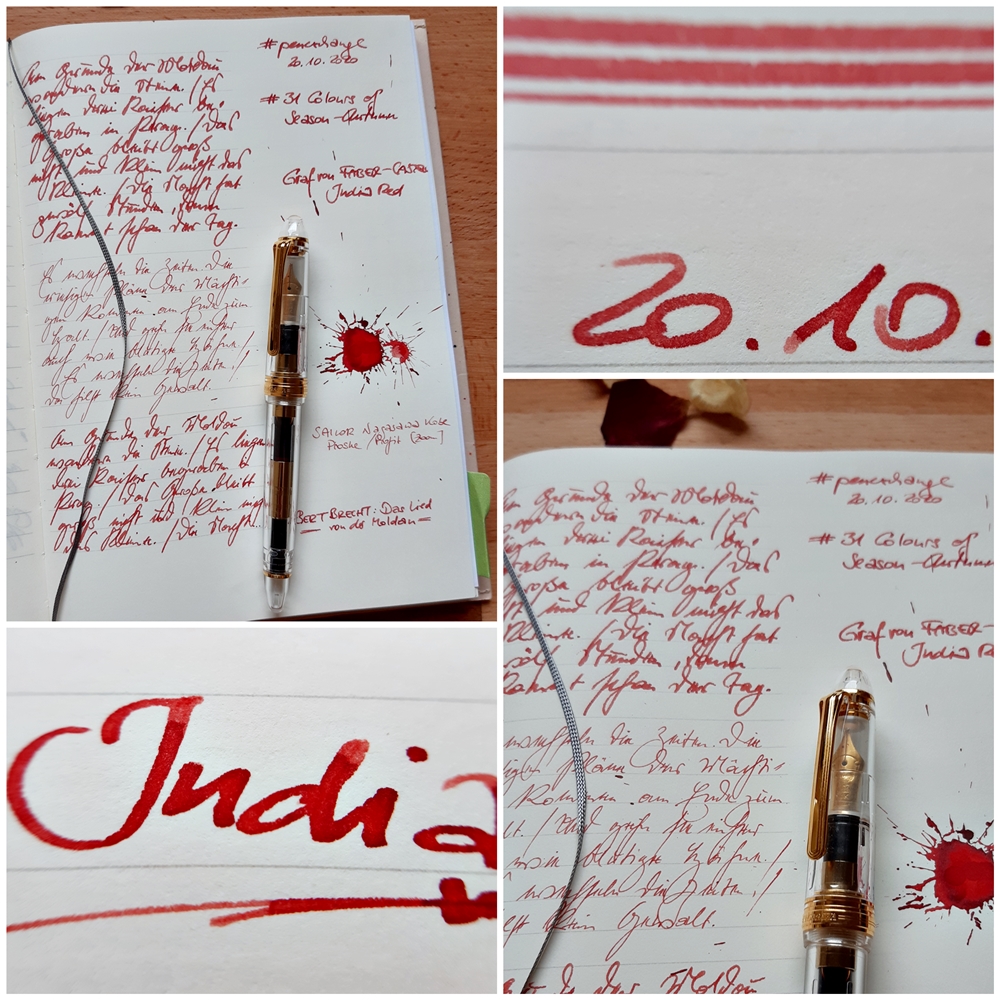 Am Grunde der Moldau
wandern die Steine. / Es
liegen drei Kaiser be-
graben in Prag. / Das
Große bleibt groß
nicht und klein nicht das
Kleine. / Die Nacht hat
zwölf Stunden, dann
kommt schon der Tag.
Es wechseln die Zeiten. Die
riesigen Pläne der Mächti-
gen kommen am Ende zum
Halt. / Und gehn sie einher
auch wie blutige Hähne. /
Es wechseln die Zeiten, /
da hilft kein Gewalt.
Am Grunde der Moldau
wandern die Steine. / Es liegen
drei Kaiser begraben in
Prag. / Das Große bleibt
groß nicht und / klein nicht
das Kleine. / Die Nacht
#penchange
20.10.2020
#31 Colours of
Season-Autumn
Graf von FABER-CASTELL
India Red
SAILOR Nagasawa Kobe
Proske / Profit
BERT BRECHT: Das Lied
von de Moldau =
20.10.
Indi
Grunde der Moldau
wandern die Steine. / Es
liegen drei Kaiser be-
graben in Prag. / Das
Große bleibt groß
nicht und klein nicht das
Kleine. / Die Nacht hat
zwölf Stunden, dann
kommt schon der Tag.
wechseln die Zeiten. Die
Pläne der Mächti-
kommen am Ende zum
Und gehn sie einher
wie blutige Hähne. /
wechseln die Zeiten, /
hilft kein Gewalt.
der Moldau
#penchange
20.10.2020
#31 Colours of
Season-Autumn
Graf von FABER-
India Re